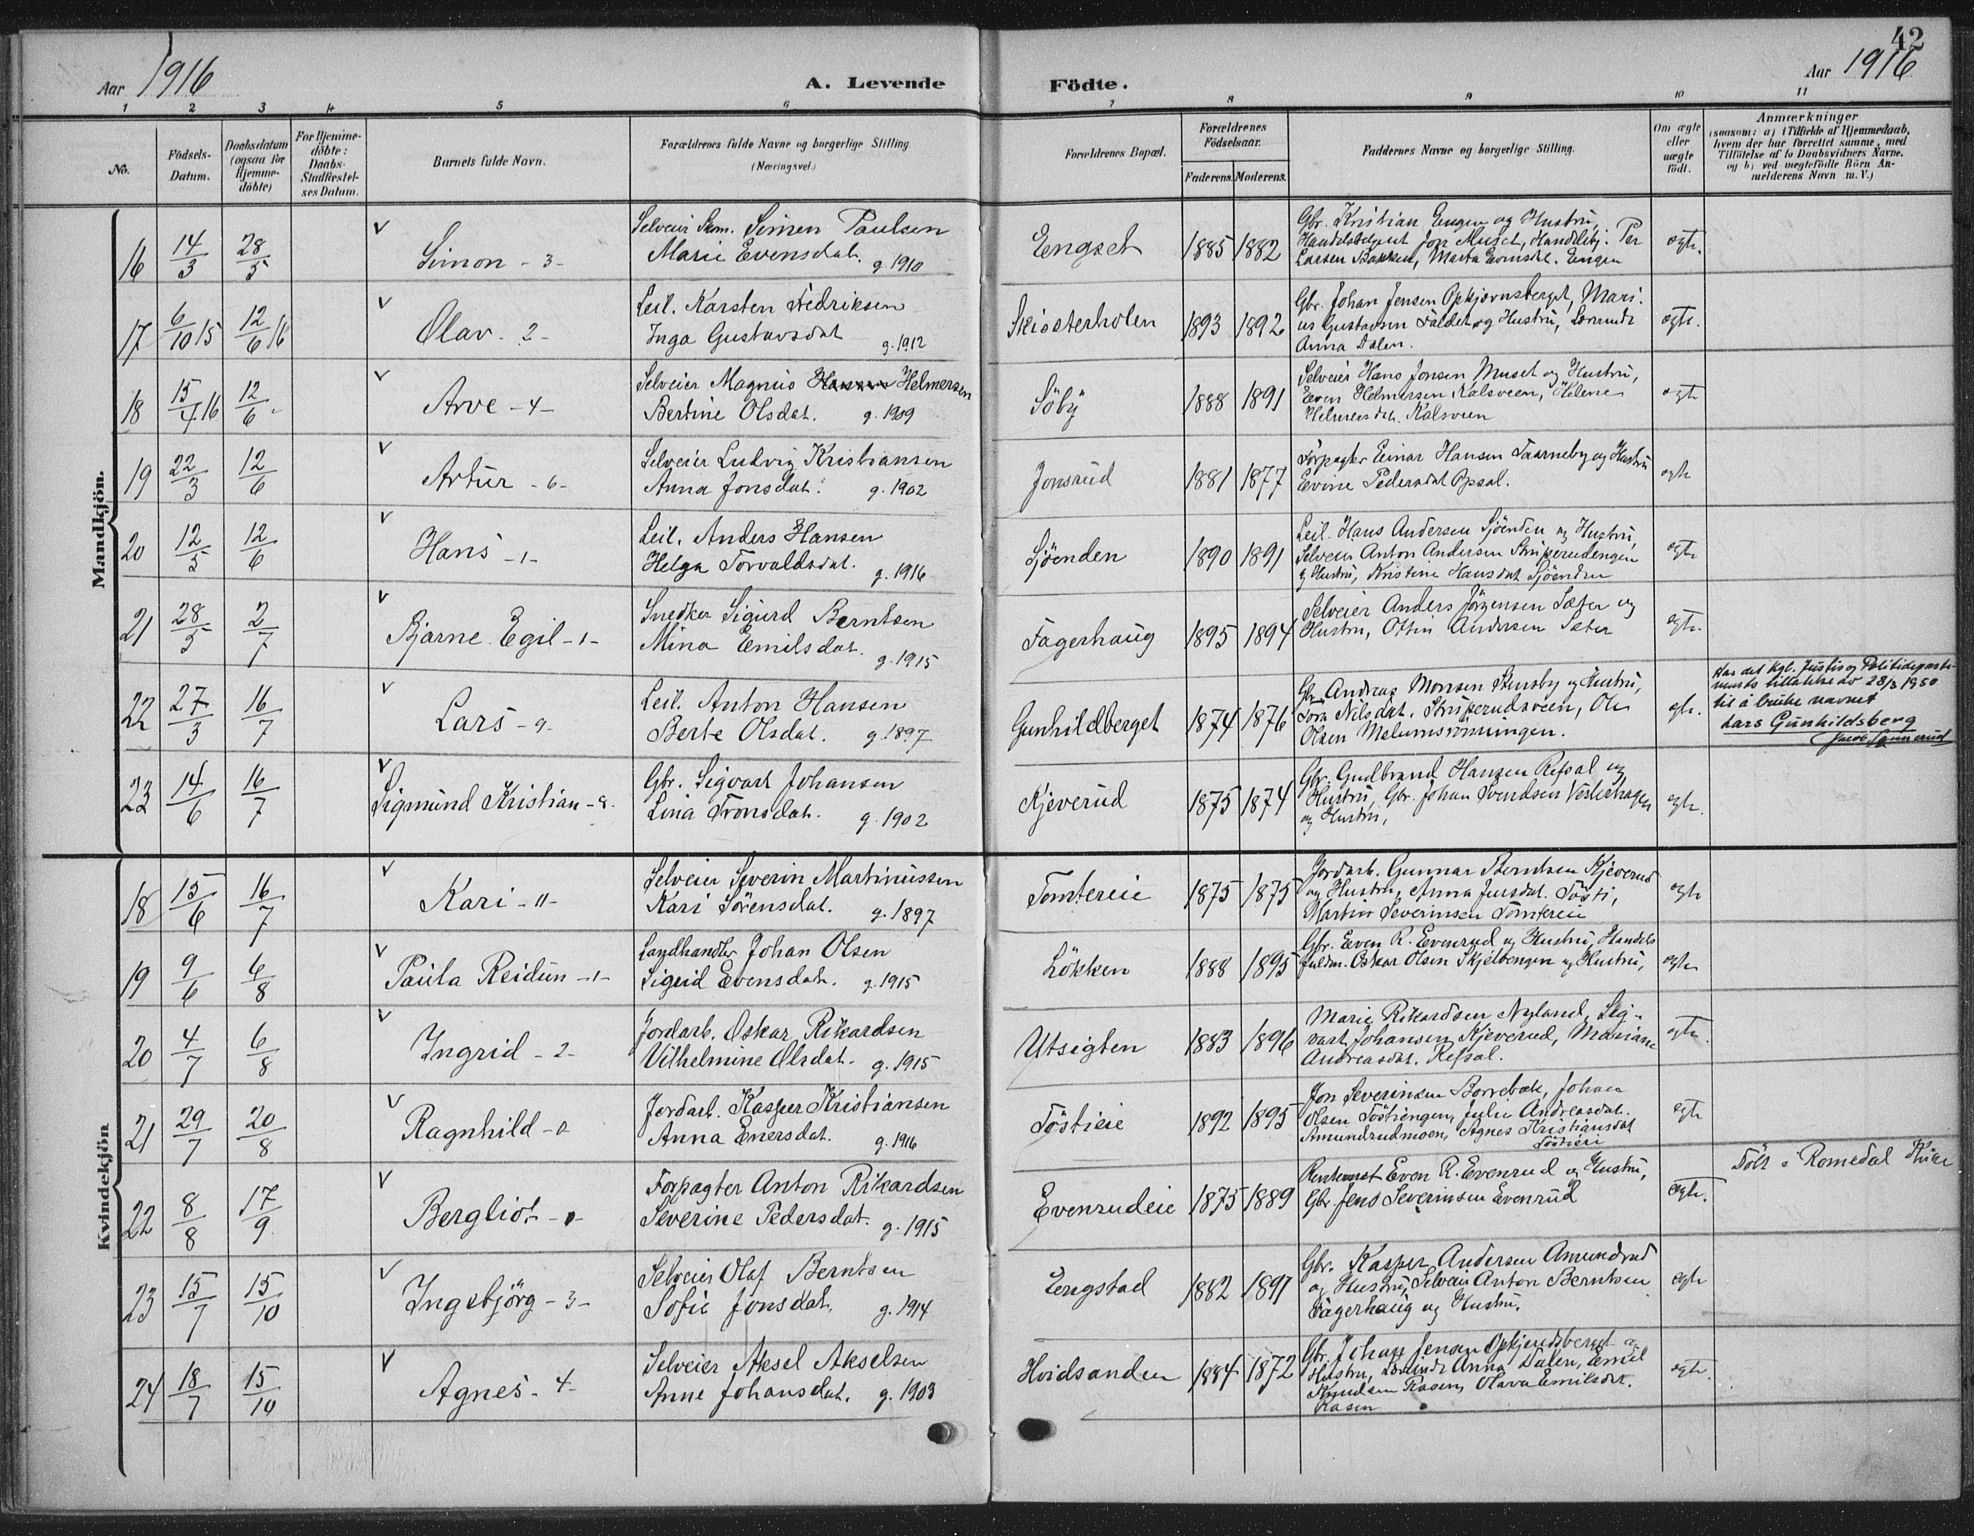 42
Aar 1916
A. Levende Födte.
Aar 1916
1 2 3 4 5 6 7 8 9 10 11
No.
Födsels-
Datum.
Daabsdatum
(ogsaa for
Hjemme-
döbte)
For Hjemme-
döbte:
Daabs-
Stadfæstel-
ses Datum.
Barnets fulde Navn.
Forældrenes fulde Navne og borgerlige Stilling
(Næringsvei.)
Forældrenes Bopæl.
Forældrenes
Födselsaar.
Faderens. Moderens.
Faddernes Navne og borgerlige Stilling.
Om ægte
eller
uægte
födt.
Anmærkninger
(saasom: a) i Tilfælde af Hjemmedaab,
hvem der har forrettet samme, med
Tilföielse af to Daabsvidners Navne,
og b) ved uægtefödte Börn An-
melderens Navn m. V.)
Mandkjön.
16 14/3 28/5 v Simon - 3 -
Selveier Simen Paulsen
Marie Evensdat. g. 1910
Engset 1885 1882
Gbr. Kristian Engen og Hustru,
Jon Muset, Per
Larsen Bakken, Marta Evensdt. Engen
egte.
17 6/10 15 12/6 16 v Olav - 2 -
Leil. Karsten Fedriksen
Inga Gustavsdat g. 1912
Skiosterholen 1893 1892
Gbr. Johan Jensen Opkjørnsberget, Mari-
us Gustavsen Faldet og Hustru,
Anna Dalen.
egte.
18 15/4 16 12/6 - v Arve - 4 -
Selveier Magnus Hansen Helmersen
Bertine Olsdat. g. 1909
Söby 1888 1891
Selveier Hans Jonsen Muset og Hustru,
Even Helmersen Kalsveen, Helene
Helmersdat. Kalsveen
egte
19 22/3 12/6 v Artur - 6 -
Selveier Ludvig Kristiansen
Anna Jonsdat. g. 1902
Jonsrud 1881 1877
Forpagter Einar Hansen Taarneby og Hustru
Evine Pedersdat Opsal.
egte
20 12/5 12/6 v Hans - 1 -
Leil. Anders Hansen
Helga Torvaldsdat. g. 1916
Sjøenden 1890 1891
Leil. Hans Andersen Sjøenden og Hustru,
Selveier Anton Andersen Skriperudengen
og Hustru, Kristine Hansdat Sjøenden
egte
21 28/5 2/7 v Bjarne Egil - 1 -
Snedker Sigurd Berntsen
Mina Emilsdat. g. 1915
Fagerhaug 1895 1894
Selveier Anders Jörgensen Sæter og
Hustru, Ottin Andersen Sæter
egte.
22 27/3 16/7 v Lars - 9 -
Leil. Anton Hansen
Berte Olsdat. g. 1897
Gunhildberget 1874 1876
Gbr. Andreas Monsen Stensby og Hustru,
Tora Nilsdat. Skriperudsveen, Ole
Olsen Melumsrönningen.
egte.
Har det kgl. Justis og Politideparte-
ments tillatelse av 28/3 1950
til å bruke navnet
Lars Gunhildsberg
23 14/6 16/7 v Sigmund Kristian - 2.
Gbr. Sigvart Johansen
Lina Tronsdat. g. 1902
Kjeverud 1875 1874
Gbr. Gudbrand Hansen Refsal og
Hustru, Gbr. Johan Svendsen Vesterhagen
og Hustru,
egte.
Kvindekjön
18 15/6 16/7 v Kari - 11 -
Selveier Severin Martinussen
Kari Sörensdat. g. 1897
Tomtereie 1875 1875
Jordarb. Gunnar Berntsen Kjeverud
og Hustru, Anna Jensdat. Tösti,
Martin Severinsen Tomtereie
egte
19 9/6 6/8 v Paula Reidun - 1 -
Landhandler Johan Olsen
Sigrid Evensdat. g. 1915
Lökken 1888 1895
Gbr. Even R. Evenrud og Hustru, Handels
fuldm. Oskar Olsen Skjelbergen og Hustru,
egte
20 4/7 6/8 v Ingrid - 2 -
Jordarb. Oskar Rikardsen
Vilhelmine Olsdat. g. 1915
Utsigten 1883 1896
Marie Rikardsen Nyland, Sig-
vart Johansen Kjeverud, Mariane
Andreasdat. Refsal.
egte.
21 29/7 20/8 v Ragnhild - 0
Jordarb. Kasper Kristiansen
Anna Enersdat. g. 1916
Töstieie 1892 1895
Jon Severinsen Borrebæk, Johan
Olsen Töstiengen, Julie Andreasdat.
Amundrudmoen, Agnes Kristiansdat
Töstieie
egte
22 8/8 17/9 v Bergliot - 0 -
Forpagter Anton Rikardsen
Severine Pedersdat. g. 1915
Evenrudeie 1875 1889
Even R. Evenrud og Hustru,
Gbr. Jens Severinsen Evenrud
egte.
Födt i Romedal
23 15/7 15/10 v Ingebjörg - 3 -
Selveier Olaf Berntsen
Sofie Jonsdat. g. 1914
Engstad 1882 1891
Gbr. Kasper Andersen Amundrud
og Hustru, Selveier Anton Berntsen
Fagerhaug og Hustru.
egte
24 18/7 15/10 v Agnes - 4 -
Selveier Aksel Akselsen
Anne Johansdat. g. 1903
Hvidsanden 1884 1872
Gbr. Johan Jensen Opkjerndsberget og
Hustru, Anna Dalen, Emil
Knudsen Kasen, Olava Emilsdat.
Kasen
egte.